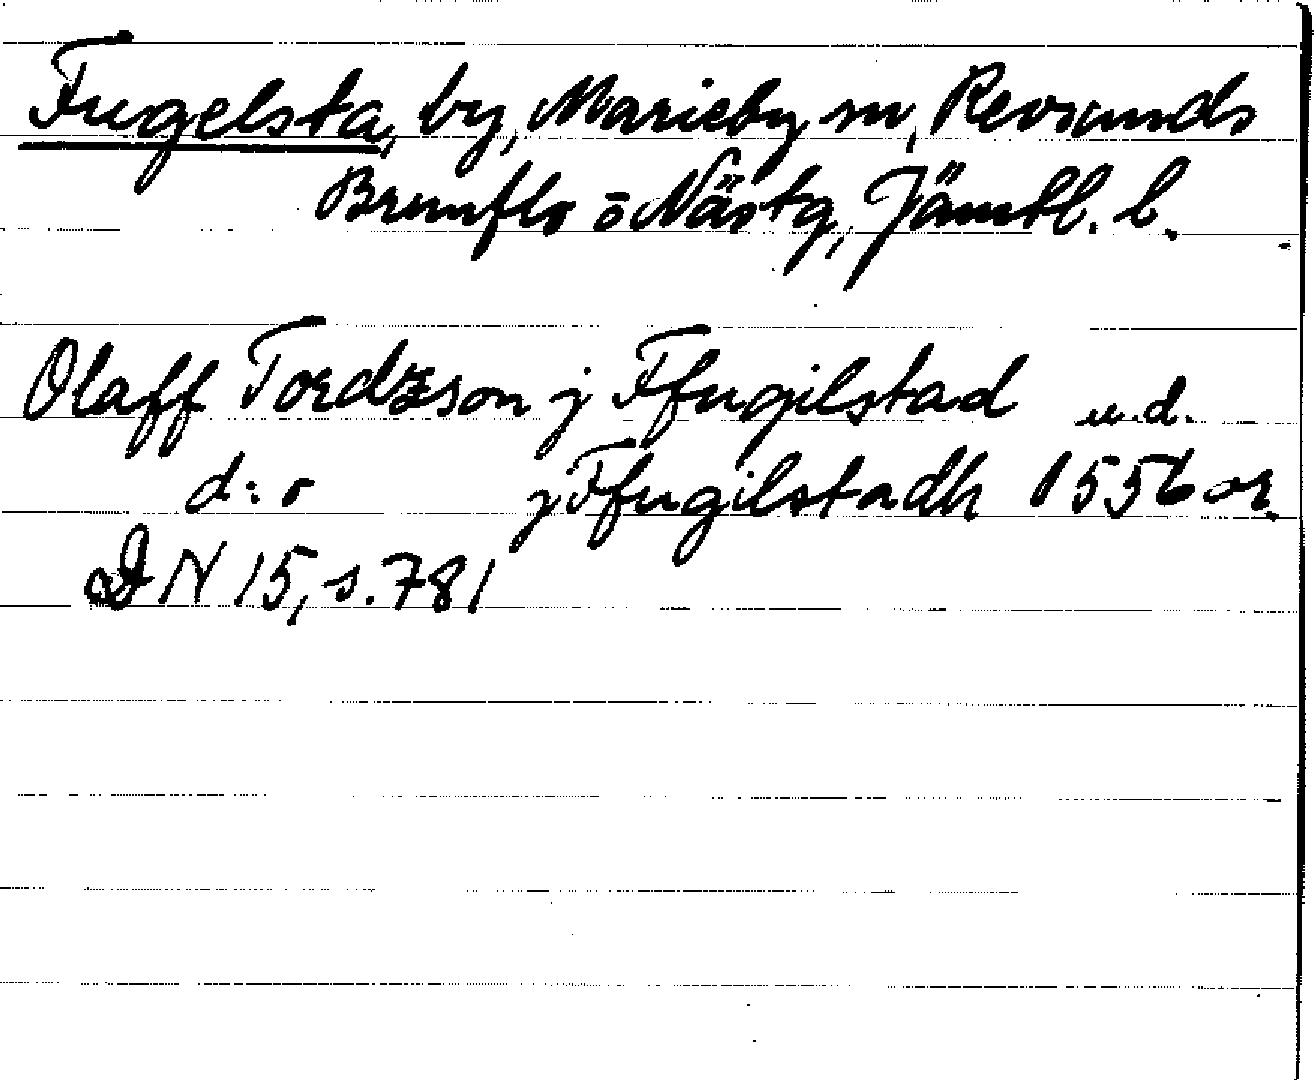 Fugelsta, by, Marieby sn, Revsunds
Brunflo o Näs tg, Jämtl. l.
Olaff Tordzson j Ffugilstad u.d.
d:o j Ffugilstadh 1556 or.
DN 15, s. 781